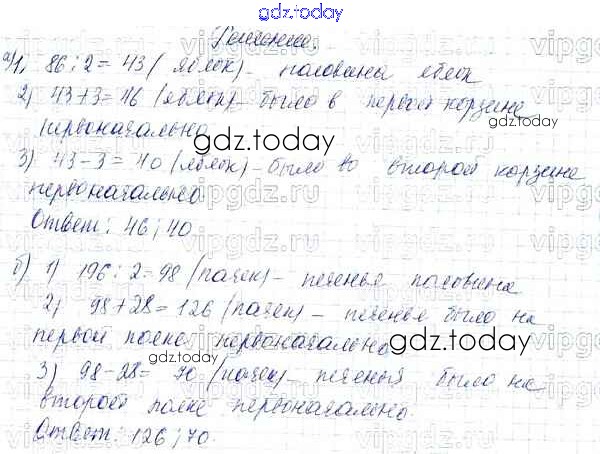 gdz.today
Решение.
а) 1. 86 : 2 = 43 (яблок) - половина яблок
2) 43+3=46 (яблок) - было в первой корзине
первоначально
gdz.today
3) 43-3=40 (яблок) - было во второй корзине
первоначально.
Ответ: 46; 40
б) 1) 196 : 2 = 98 (пачек) - печенья половина
2) 98+28=126 (пачек) - печенья было на
первой полке первоначально
gdz.today gdz.today
3) 98-28= 70 (пачек) - печенья было на
второй полке первоначально.
Ответ: 126; 70.